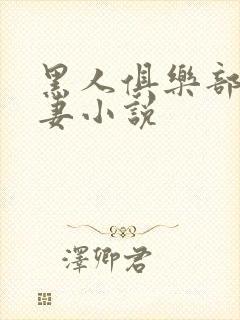 黑人俱樂部
妻小說
澤卿君